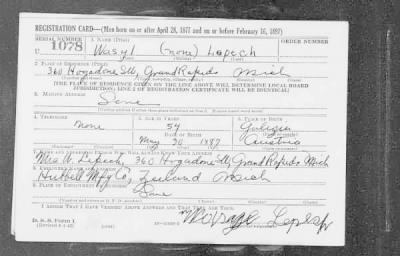 REGISTRATION CARD—(Men born on or after April 28, 1877 and on or before February 16, 1897)
SERIAL NUMBER 1. NAME (Print) ORDER NUMBER
U 1078 Wasyl (none) Lepech
2. PLACE OF RESIDENCE (Print)
360 Hogadone St, Grand Rapids Mich
[THE PLACE OF RESIDENCE GIVEN ON THE LINE ABOVE WILL DETERMINE LOCAL BOARD
JURISDICTION; LINE 2 OF REGISTRATION CERTIFICATE WILL BE IDENTICAL]
3. MAILING ADDRESS
Same
4. TELEPHONE 5. AGE IN YEARS 6. PLACE OF BIRTH
none 54
DATE OF BIRTH
May 30 1887 Austria
7. NAME AND ADDRESS OF PERSON WHO WILL ALWAYS KNOW YOUR ADDRESS
Mrs W. Lepech, 360 Hogadone St, Grand Rapids Mich
8. EMPLOYER'S NAME AND ADDRESS
Mfg Co, Zeeland Mich
9. PLACE OF EMPLOYMENT OR BUSINESS
Same
I AFFIRM THAT I HAVE VERIFIED ABOVE ANSWERS AND THAT THEY ARE TRUE.
D. S. S. Form 1